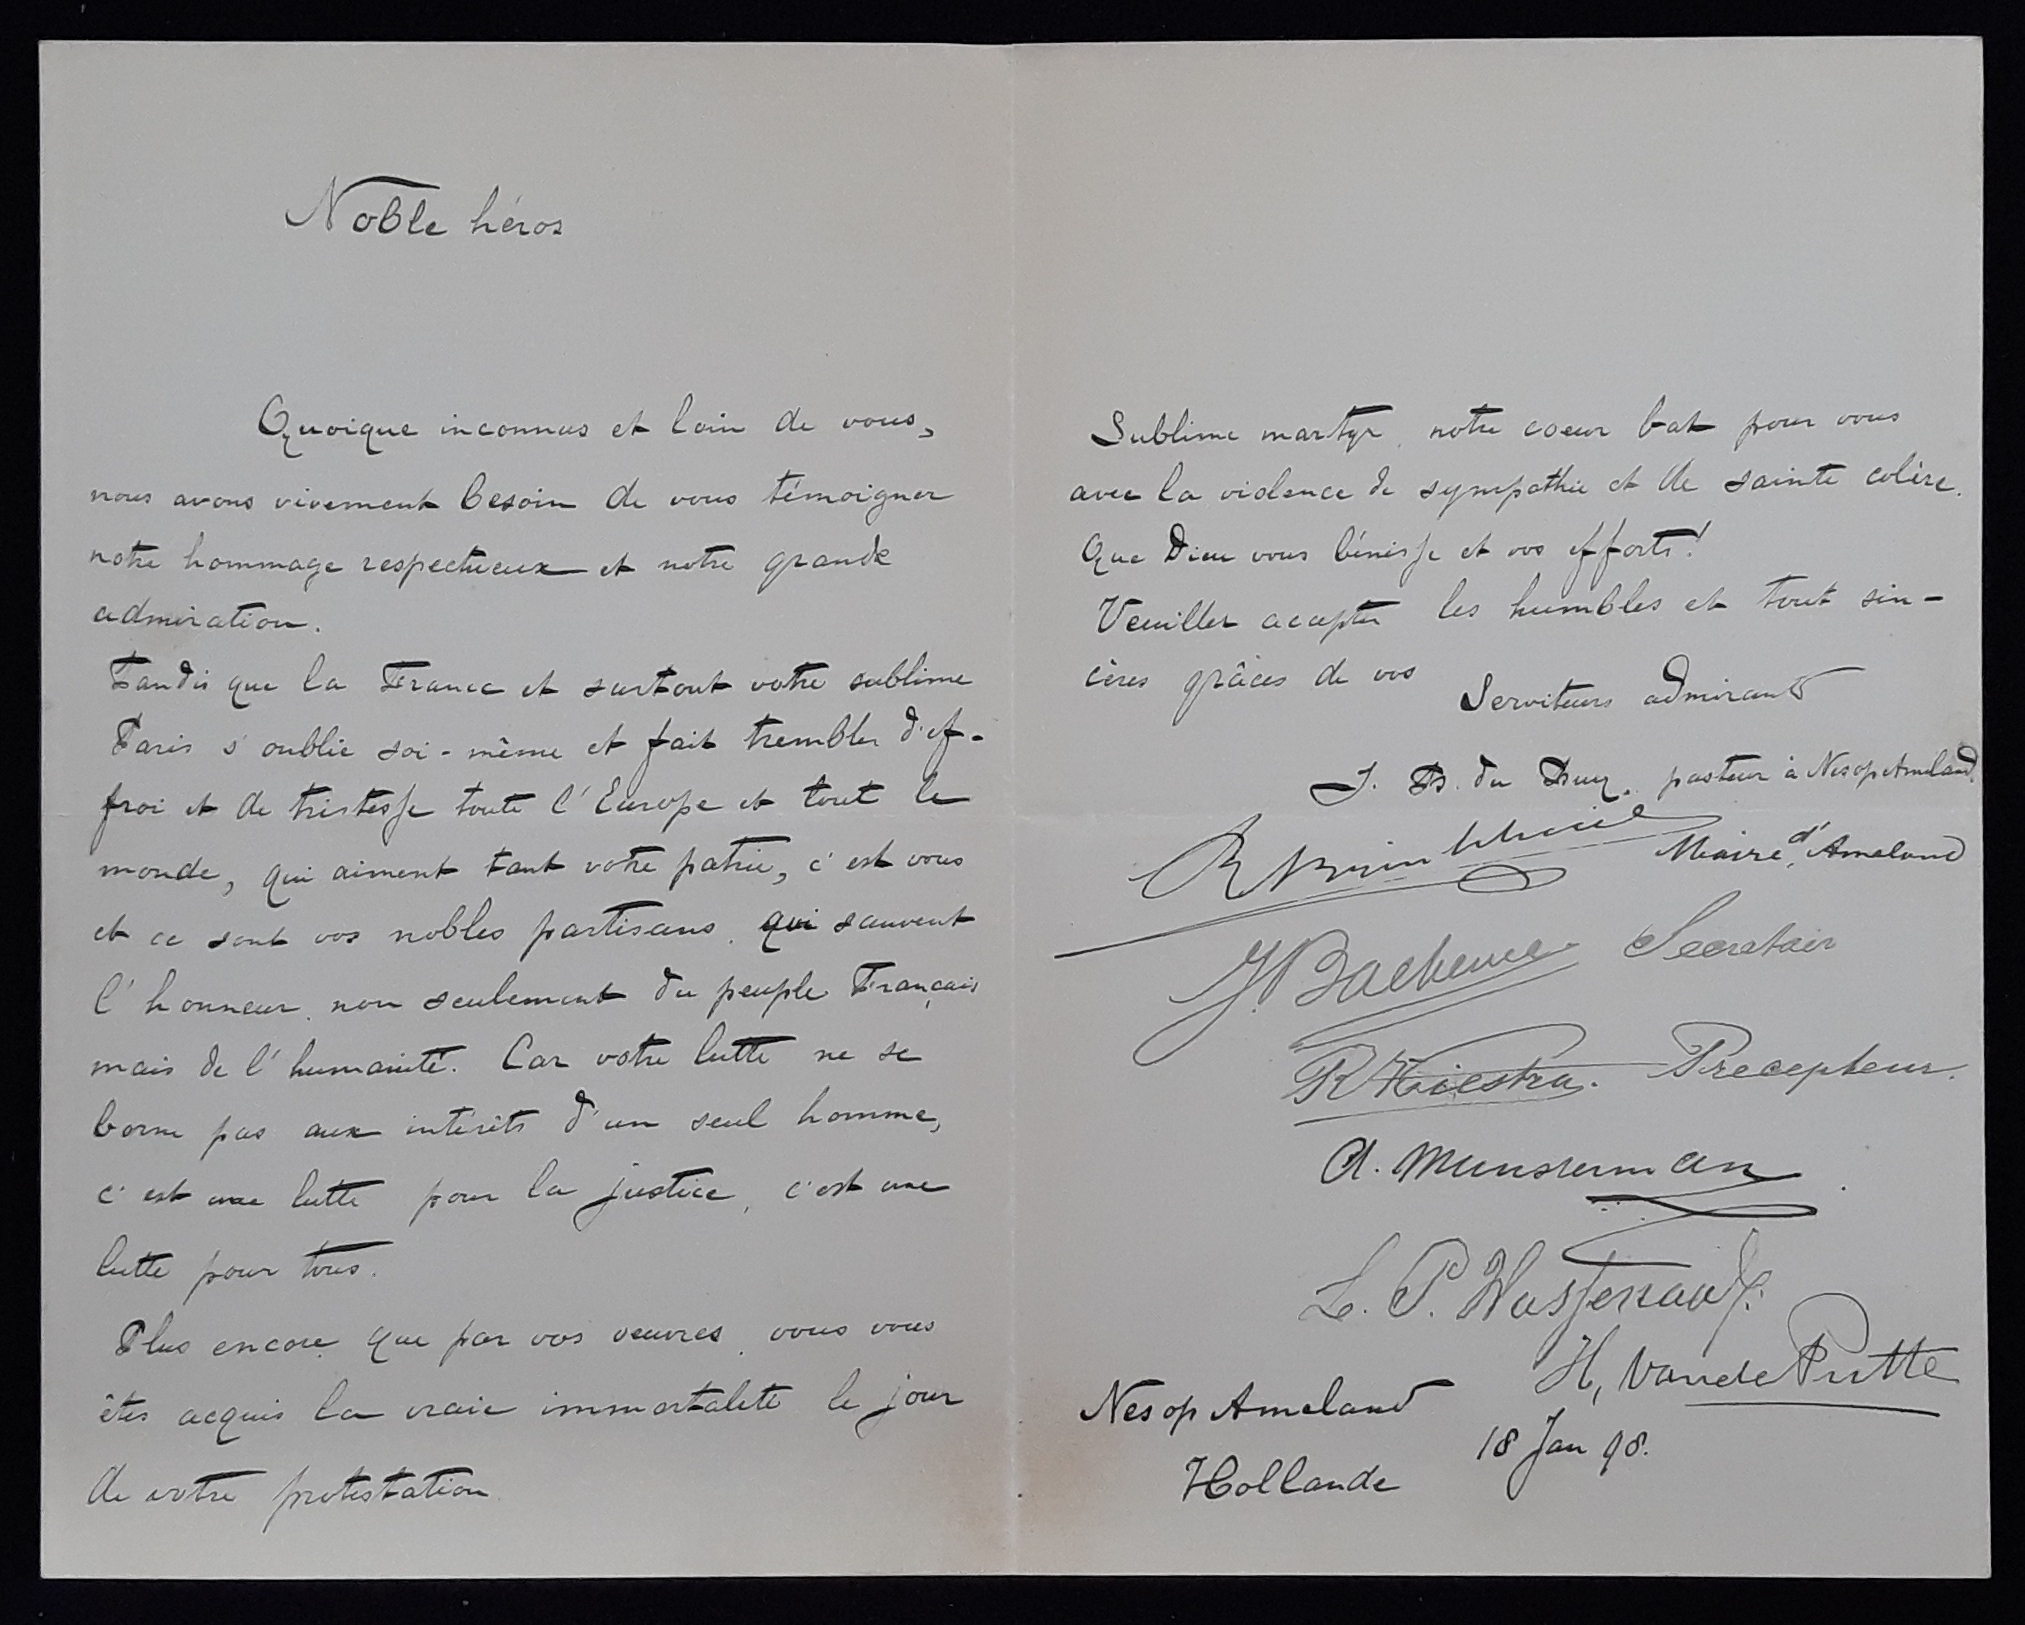 Noble héros
Quoique inconnus et loin de vous,
nous avons vivement besoin de vous témoigner
notre hommage respectueux et notre grande
admiration.
Tandis que la France et surtout votre sublime
Paris s'oublie soi-même et fait trembler d'ef-
froi et de tristesse toute l'Europe et tout le
monde, qui aiment tant votre patrie, c'est vous
et ce sont vos nobles partisans, qui sauvent
l'honneur, non seulement du peuple Français
mais de l'humanité. Car votre lutte ne se
borne pas aux intérêts d'un seul homme,
c'est une lutte pour la justice, c'est une
lutte pour tous.
Plus encore que par vos oeuvres, vous vous
êtes acquis la vraie immortalité le jour
de votre protestation
Sublime martyr, notre coeur bat pour vous
avec la violence de sympathie et de sainte colère.
Que Dieu vous bénisse et vos efforts!
Veuillez accepter les humbles et tout sin-
cères grâces de vos
Serviteurs admirants
pasteur à Nes op Ameland
Maire d'Ameland
Secretair
Precepteur.
A. Munsterman
L. P. Wassenaar
H, van de Putte
Nes op Ameland
18 Jan 98.
Hollande